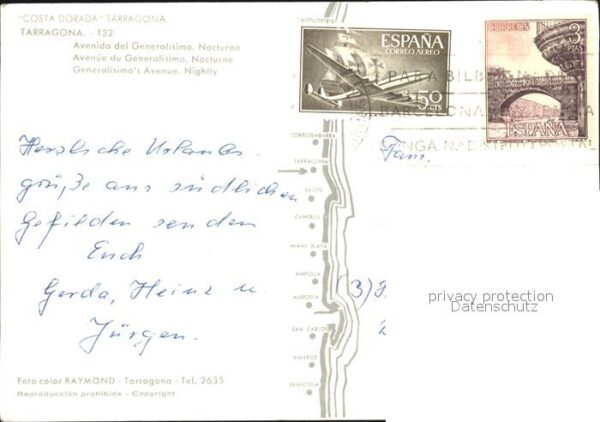 "COSTA DORADA" TARRAGONA
TARRAGONA. - 132
Avenida del Generalísimo. Nocturna
Avenue du Generalísimo. Nocturne
Generalísimo's Avenue. Nightly
Herzliche Urlaubs-
grüße aus südlichen
Gefilden senden
Euch
Gerda, Heinz u.
Jürgen.
Foto color RAYMOND - Tarragona - Tel. 2635
Reproducción prohibida - Copyright.
ESPAÑA
CORREO AEREO
50 CTS
CORREOS
3 PTAS
ESPAÑA
PARA BILB
BARCELONA
PONGA N.º DISTRITO POSTAL
TORREDEMBARRA
TARRAGONA
SALOU
CAMBRILS
MIAMI PLAYA
AMPOLLA
AMPOSTA
SAN CARLOS
VINAROZ
PEÑISCOLA
Fam.
3)
privacy protection
Datenschutz